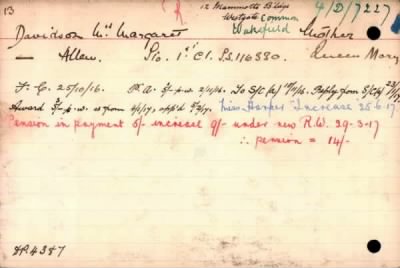 13 12 Mammotts Bldgs 4/D/7227
Westgate Common
Wakefield
Davidson Mrs Margaret Mother
— Allen. Sto. 1st Cl. S.S.116380. Queen Mary
F. C. 25/10/16. P.A. 5/- p.w. 2/11/16. To S/C Reply from S/C
Award 5/- p.w. as from app'd Miss Harper Increase 25.6.17
Pension in payment 5/- increase 9/- under new R.W. 29-3-17
∴ pension = 14/-
8P4387